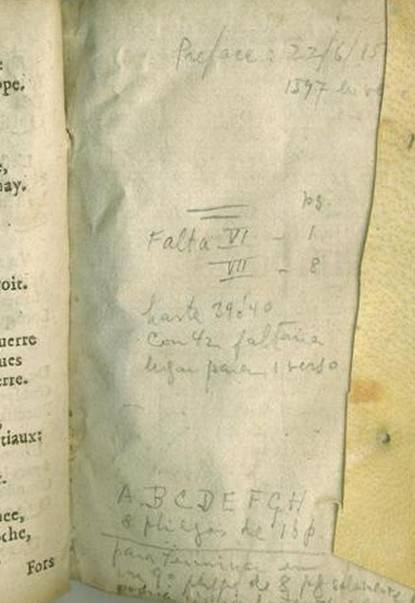 ope.
nay.
oit.
uerre
ues
erre.
tiaux:
nce,
che,
Fors
Preface: 22/6/15
1597
pg.
Falta VI - 1
VII - 8
hasta 39 ó 40
con 42 faltaria
lugar para 1 verso
A B C D E F G H
8 pliegos de 16 p.
para terminar en
un 9º pliego de 8 pg solamente